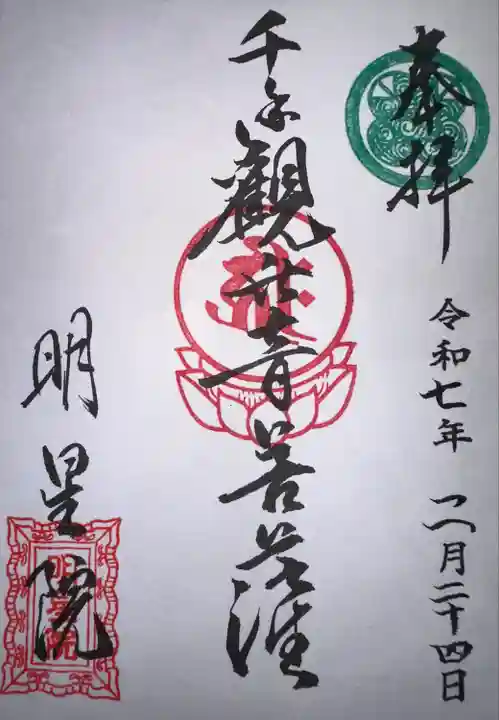 奉拝
令和七年 八月二十四日
千手觀世音菩薩
明星院
明星院